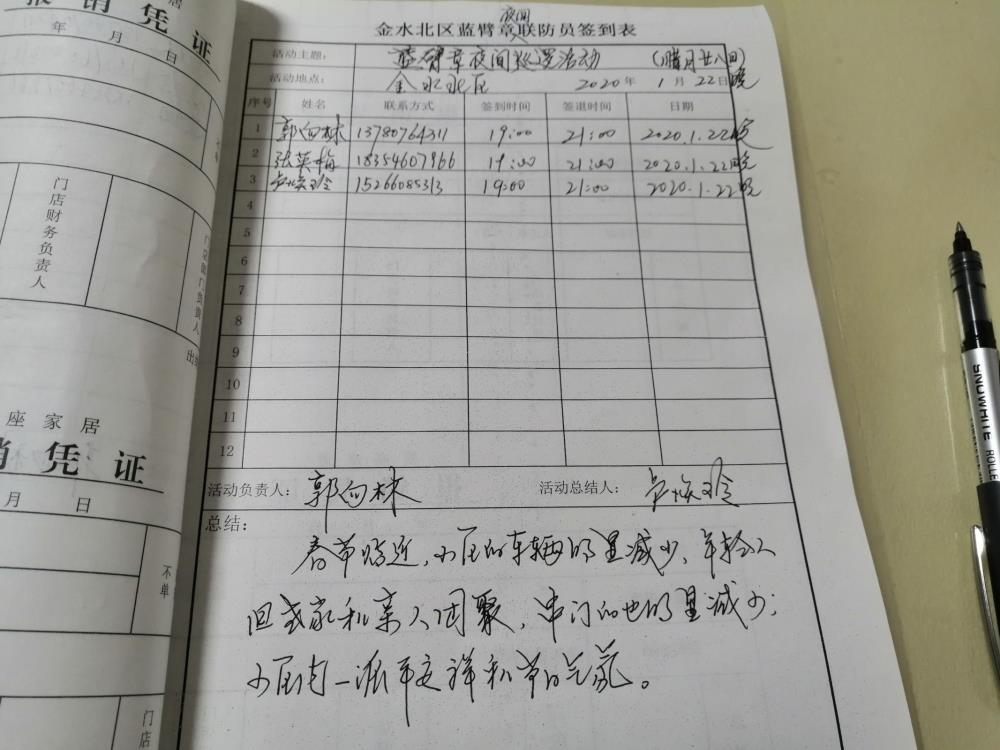 居
报销凭证
年 月 日
门店财务负责人
门店部门负责人
座家居
销凭证
月 日
不单
门店
夜间
金水北区蓝臂章联防员签到表
活动主题： 蓝臂章夜间巡逻活动 (腊月廿八日)
活动地点： 金水北区 2020年 1月 22日晚
序号 姓名 联系方式 签到时间 签退时间 日期
1 郭向林 13780764311 19:00 21:00 2020.1.22晚
2 张英梅 18354607966 19:00 21:00 2020.1.22晚
3 15266085313 19:00 21:00 2020.1.22晚
4
5
6
7
8
9
10
11
12
活动负责人： 郭向林 活动总结人：
总结：
春节临近，小区的车辆明显减少，年轻人
回老家和亲人团聚，串门的也明显减少；
小区内一派平安祥和节日气氛。
SNOWHITE ROLLE